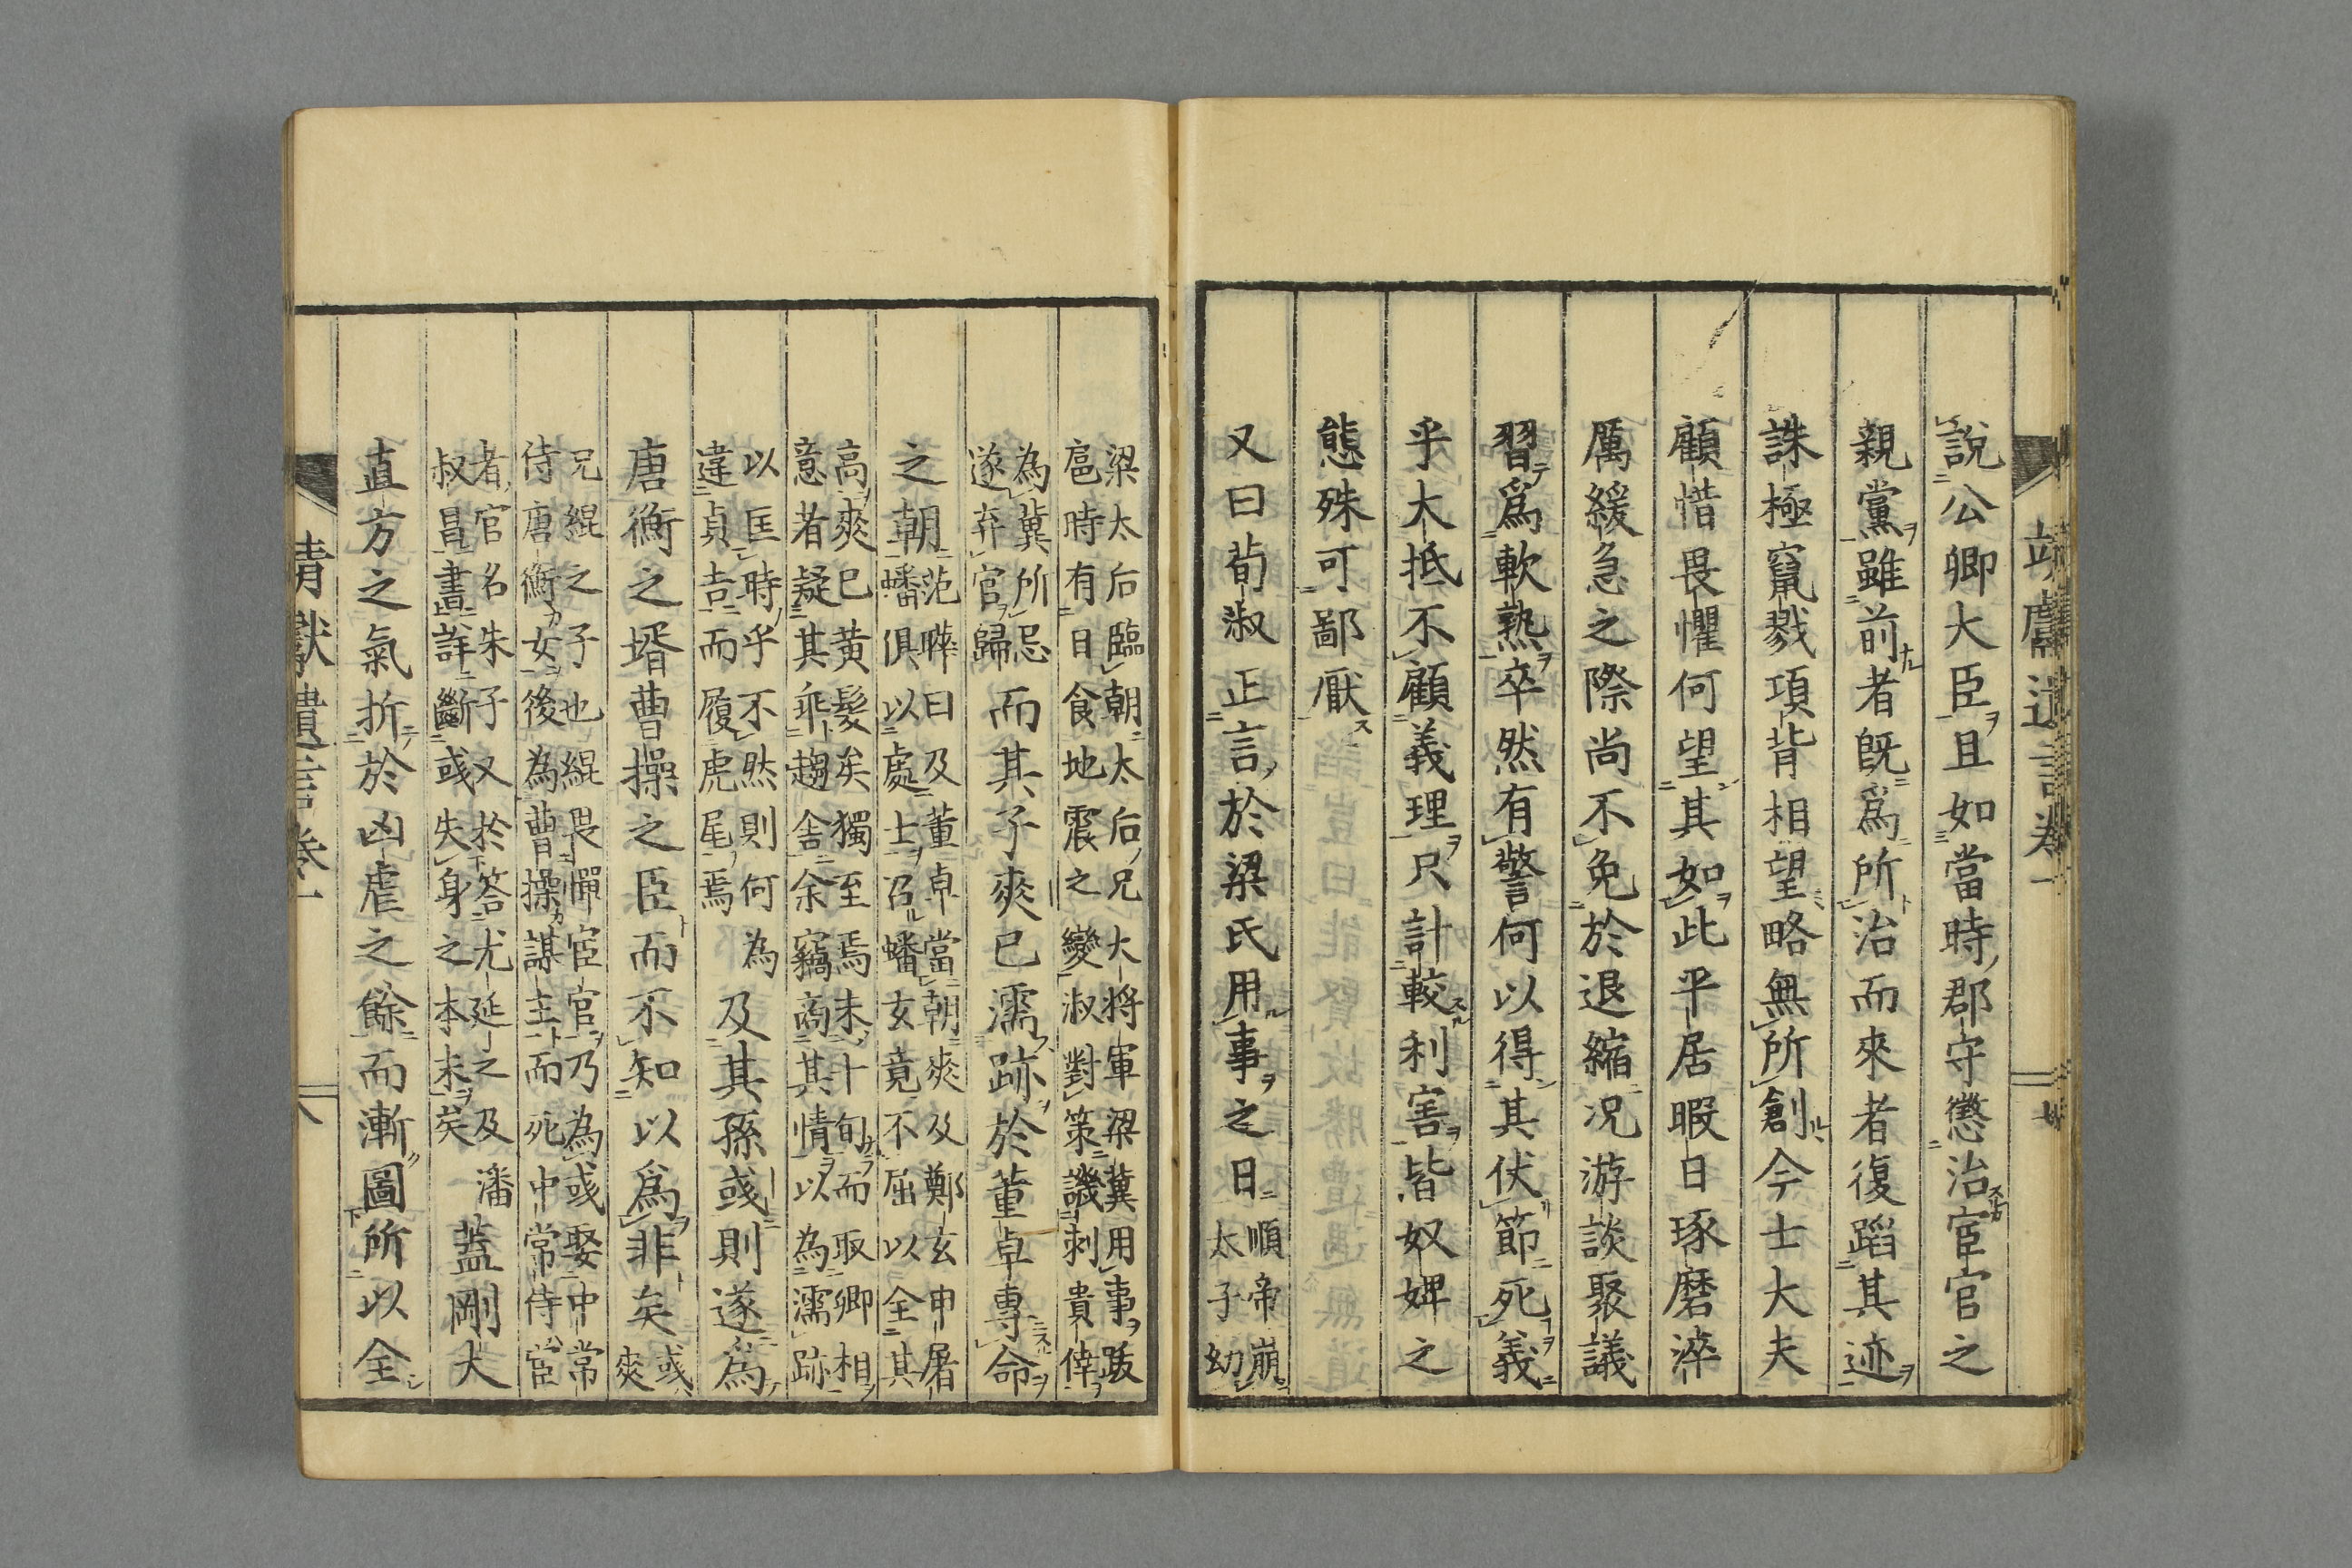 説公卿大臣且如當時郡守懲治宦官之
親黨雖前者既爲所治而來者復蹈其迹
誅極竄戮項背相望略無所創今士大夫
顧惜畏懼何望其如此平居暇日琢磨淬
厲緩急之際尚不免於退縮况游談聚議
習爲軟熟卒然有警何以得其伏節死義
乎大抵不顧義理只計較利害皆奴婢之
態殊可鄙厭
又曰荀淑正言於梁氏用事之日
順帝崩
太子幼
梁太后臨朝太后兄大将軍梁冀用事跋
扈時有日食地震之變淑對策譏刺貴倖
為冀所忌
遂弃官歸
而其子爽已濡跡於董卓專命
之朝
范曄曰及董卓當朝爽及鄭玄申屠
蟠俱以處士召蟠玄竟不屈以全其
高爽已黄髮矣獨至焉未十旬而取卿相
意者疑其乖趨舎余竊商其情以為濡跡
以匡時乎不然則何為
違貞吉而履虎尾焉
及其孫彧則遂為
唐衡之壻曹操之臣而不知以爲非矣
彧
爽
兄緄之子也緄畏憚宦官乃為彧娶中常
侍唐衡女後為曹操謀主而死中常侍宦
者官名朱子又於答尤延之及潘
叔昌書詳斷彧失身之本末矣
蓋剛大
直方之氣折於凶虐之餘而漸圖所以全